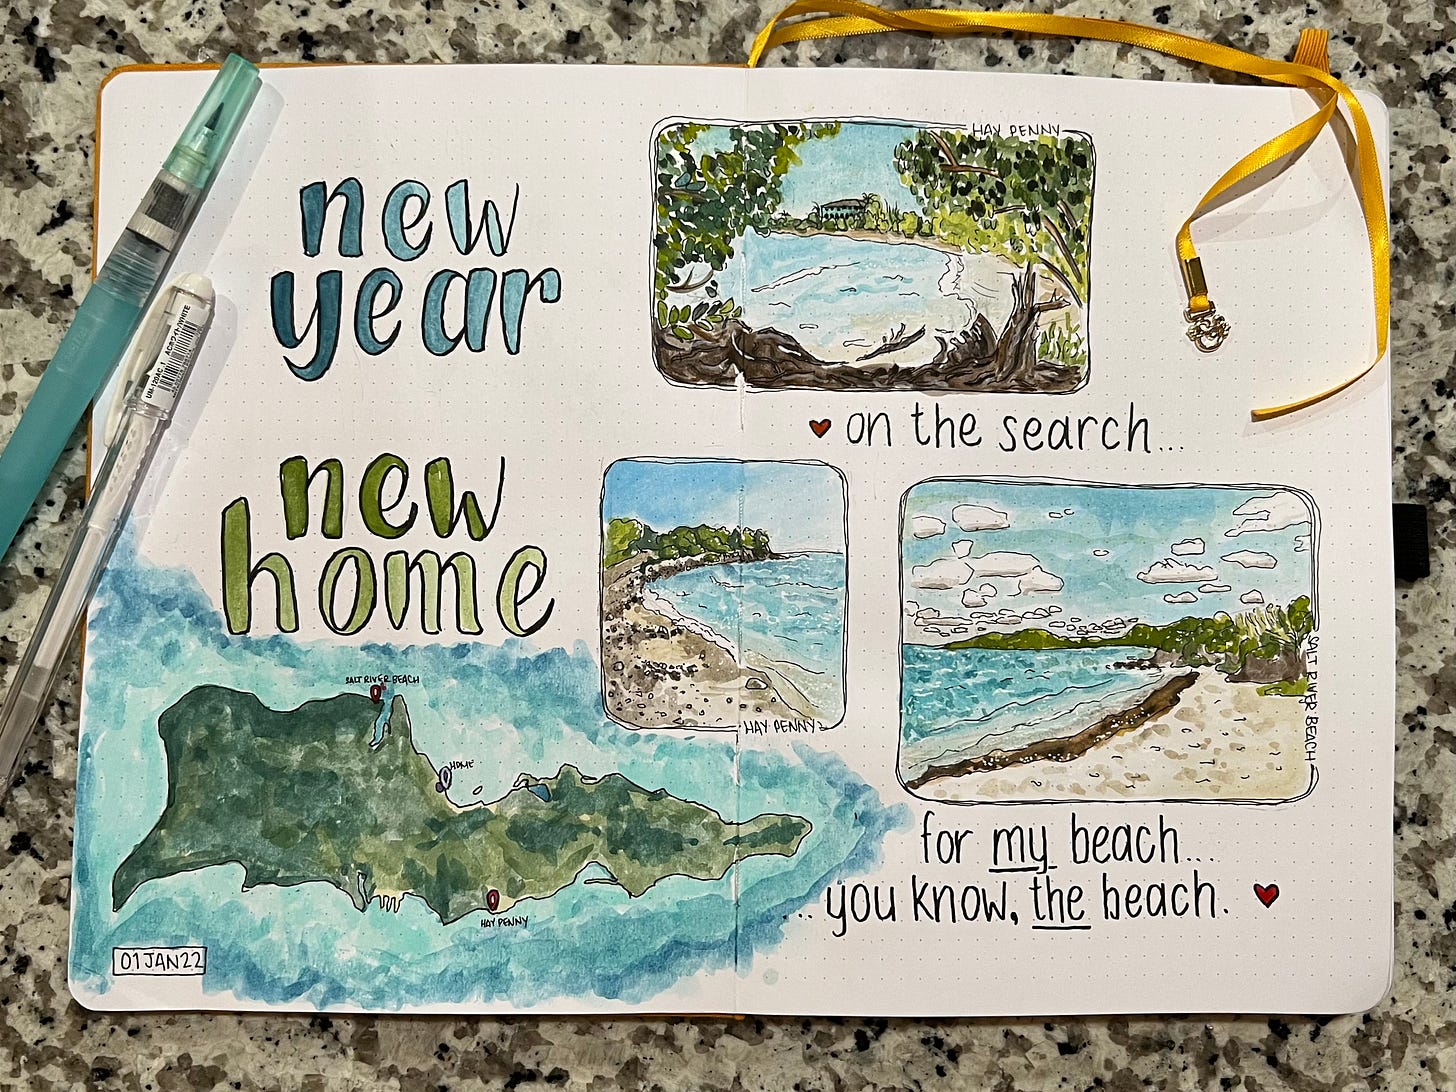 new
year
new
home
SALT RIVER BEACH
HOME
HAY PENNY
01 JAN 22
HAY PENNY
♥ on the search...
HAY PENNY
SALT RIVER BEACH
for my beach...
...you know, the beach. ♥